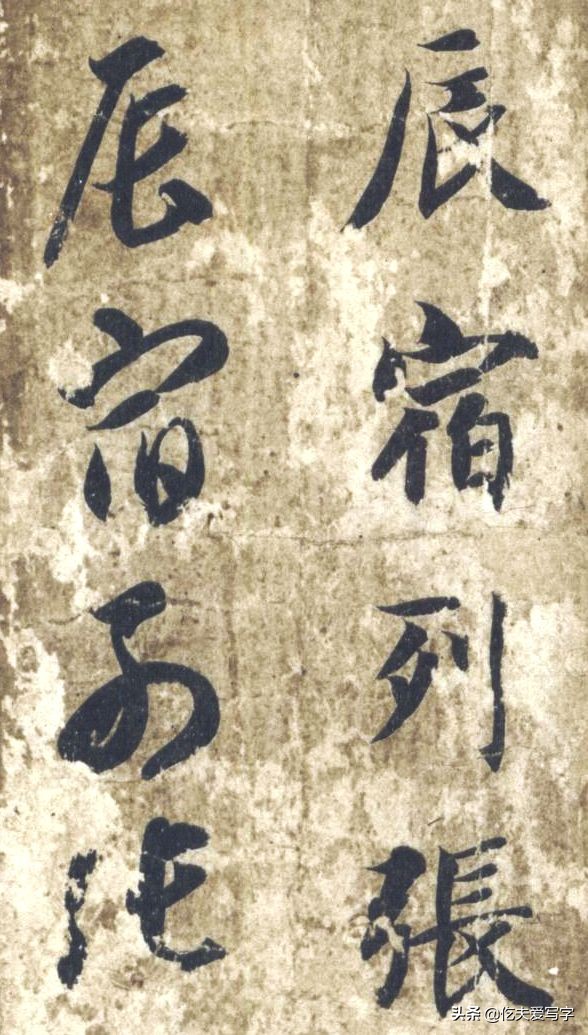 辰宿列張
辰宿列张
头条 @亿夫爱写字